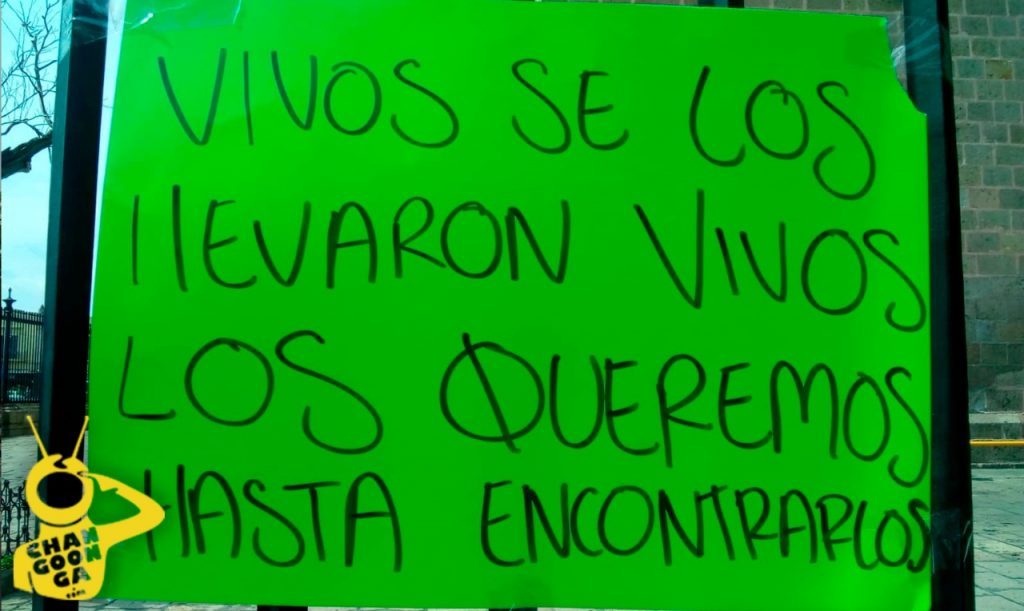 VIVOS SE LOS
llEVARON VIVOS
LOS QUEREMOS
HASTA ENCONTRARLOS
CHAN
GOON
GA
.com